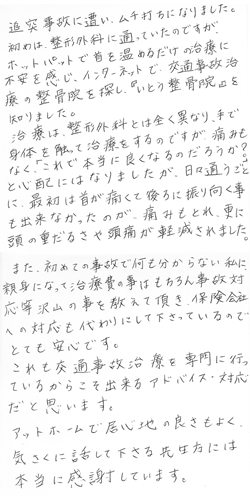 追突事故に遭い、ムチ打ちになりました。
初めは、整形外科に通っていたのですが、
ホットパットで首を温めるだけの治療に
不安を感じ、インターネットで、交通事故治
療の整骨院を探し、『いとう整骨院』を
知りました。
治療は、整形外科とは全く異なり、手で
身体を触って治療をするのですが、痛みも
なく、「これで本当に良くなるのだろうか？」
と心配にはなりましたが、日々通うごと
に、最初は首が痛くて後ろに振り向く事
も出来なかったのが、痛みもとれ、更に
頭の重だるさや頭痛が軽減されました。
また、初めての事故で何も分からない私に
親身になって治療費の事はもちろん事故対
応等沢山の事を教えて頂き、保険会社
への対応も代わりにして下さっているので
とても安心です。
これも交通事故治療を専門に行っ
ているからこそ出来るアドバイス・対応
だと思います。
アットホームで居心地の良さもよく、
気さくに話して下さる先生方には
本当に感謝しています。